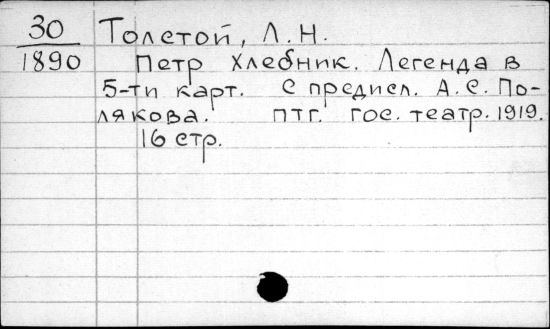 30
1890
Толстой, Л. Н.
Петр Хлебник. Легенда в
5-ти карт. С предисл. А. С. По-
лякова. птг. гос. театр. 1919.
16 стр.